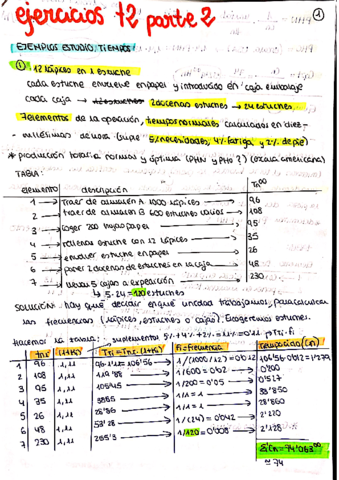 ejercicios t2 parte 2
1
EJEMPLOS ESTUDIO TIEMPOS
① 12 lápices en 1 estuche
cada estuche envuelve en papel y introducido en caja embalaje
cada caja → 2 docenas estuches → 24 estuches.
7 elementos de la operación, tiempos normales calculados en diez-
milésimas de hora (supl 5% necesidades, 4% fatiga y 2% de pie)
* producción horaria normal y óptima (PHN y PHO?) (escala americana)
TABLA:
elemento descripción Tn⁰⁰
1 → traer de almacén A 1000 lápices 96
2 → traer de almacén B 600 estuches vacíos 108
3 → coger 200 hojas papel 95
4 → rellenas estuche con 12 lápices 35
5 → envolver estuche en papel 26
6 → poner 2 docenas de estuches en la caja 48
7 → llevar 5 cajas a expedición 230
↳ 5·24 = 120 estuches
SOLUCIÓN: hay que decidir en qué unidad trabajamos, para calcular
las frecuencias (lápices, estuches o cajas). Escogeremos estuches.
Hacemos la tabla: suplementos 5%+4%+2% = 11% = 0'11 → Tri·Fi
Tni (1+K) Tri = Tni·(1+K) Fi = Frecuencia Tiempo ciclo (Cn)
1 96 1,11 96·1'11 = 106'56 → 1/(1000/12) = 0'012 106'56·0'012 = 1'279
2 108 1,11 119'88 → 1/600 = 0'002 0'200
3 95 1,11 105'45 → 1/200 = 0'005 0'527
4 35 1,11 38'85 → 1/1 = 1 38'850
5 26 1,11 28'86 → 1/1 = 1 28'860
6 48 1,11 53'28 → 1/(24) = 0'042 2'220
7 230 1,11 255'3 → 1/120 = 0'008 2'128
ΣCn = 74'063⁰⁰
≃ 74